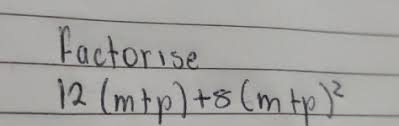 Factorise
12 (m+p) + 8 (m+p)²